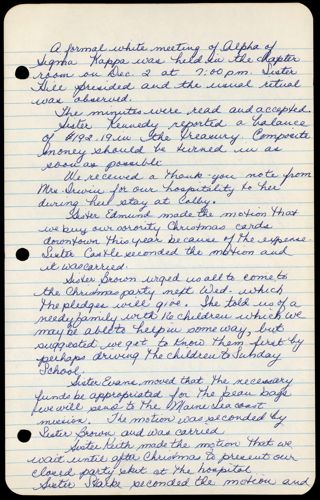 A formal white meeting of Alpha of
Sigma Kappa was held in the chapter
room on Dec. 2 at 7:00 p.m. Sister
Hill presided and the usual ritual
was observed.
The minutes were read and accepted.
Sister Kennedy reported a balance
of $192.19 in the treasury. Composite
money should be turned in as
soon as possible
We received a thank-you note from
Mrs. Irwin for our hospitality to her
during her stay at Colby.
Sister Edmund made the motion that
we buy our sorority Christmas cards
downtown this year because of the expense
Sister Castle seconded the motion and
it was carried.
Sister Brown urged us all to come to
the Christmas party next Wed. which
the pledges will give. She told us of a
needy family with 16 children which we
may be able to help in some way, but
suggested we get to know them first by
perhaps driving the children to Sunday
School.
Sister Evans moved that the necessary
funds be appropriated for the bean bags
we will send to the Maine Sea coast
mission. The motion was seconded by
Sister Brown and was carried.
Sister Ruth made the motion that we
wait until after Christmas to present our
closed party skit at the hospital.
Sister Starke seconded the motion and